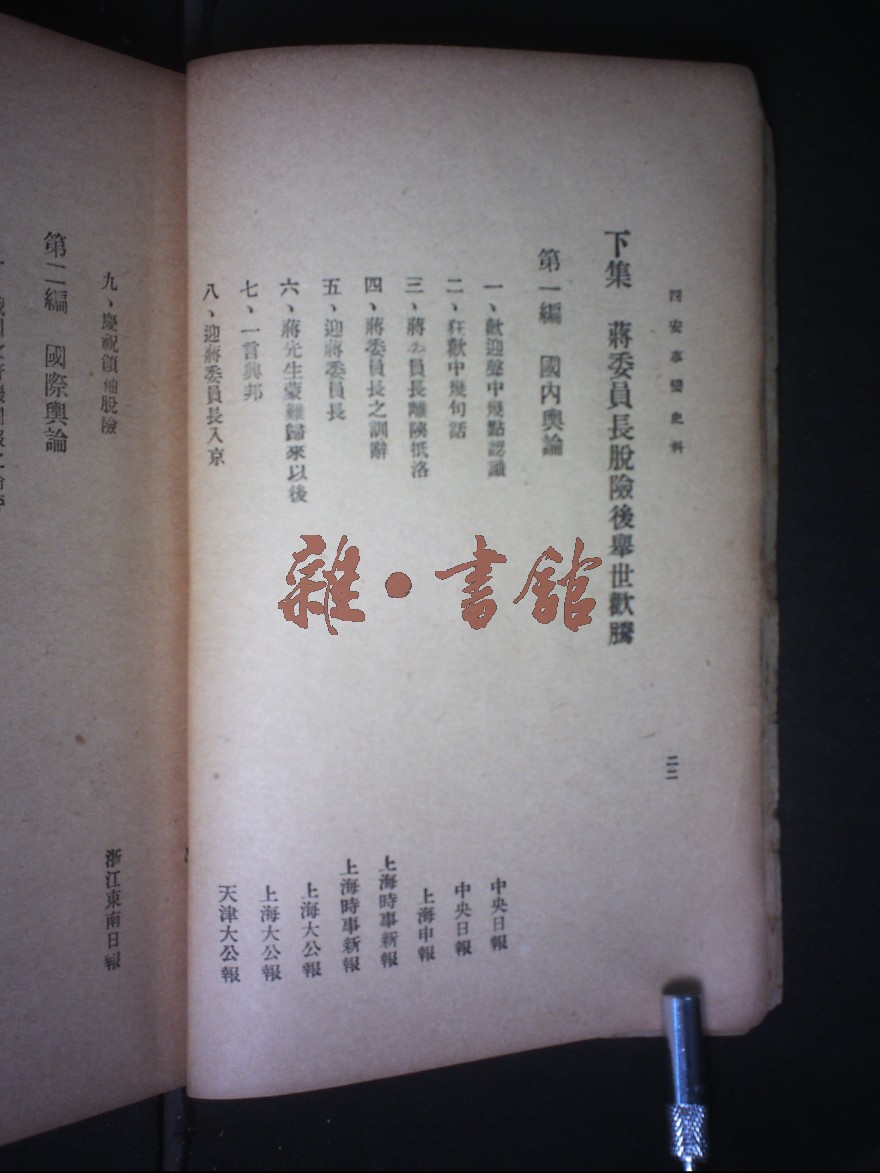 西安事變史料
二二
下集 蔣委員長脫險後舉世歡騰
第一編 國內輿論
一、歡迎聲中幾點認識 中央日報
二、狂歡中幾句話 中央日報
三、蔣委員長離陝抵洛 上海申報
四、蔣委員長之訓辭 上海時事新報
五、迎蔣委員長 上海時事新報
六、蔣先生蒙難歸來以後 上海大公報
七、一言興邦 上海大公報
八、迎蔣委員長入京 天津大公報
九、慶祝領袖脫險 浙江東南日報
第二編 國際輿論
雜·書館